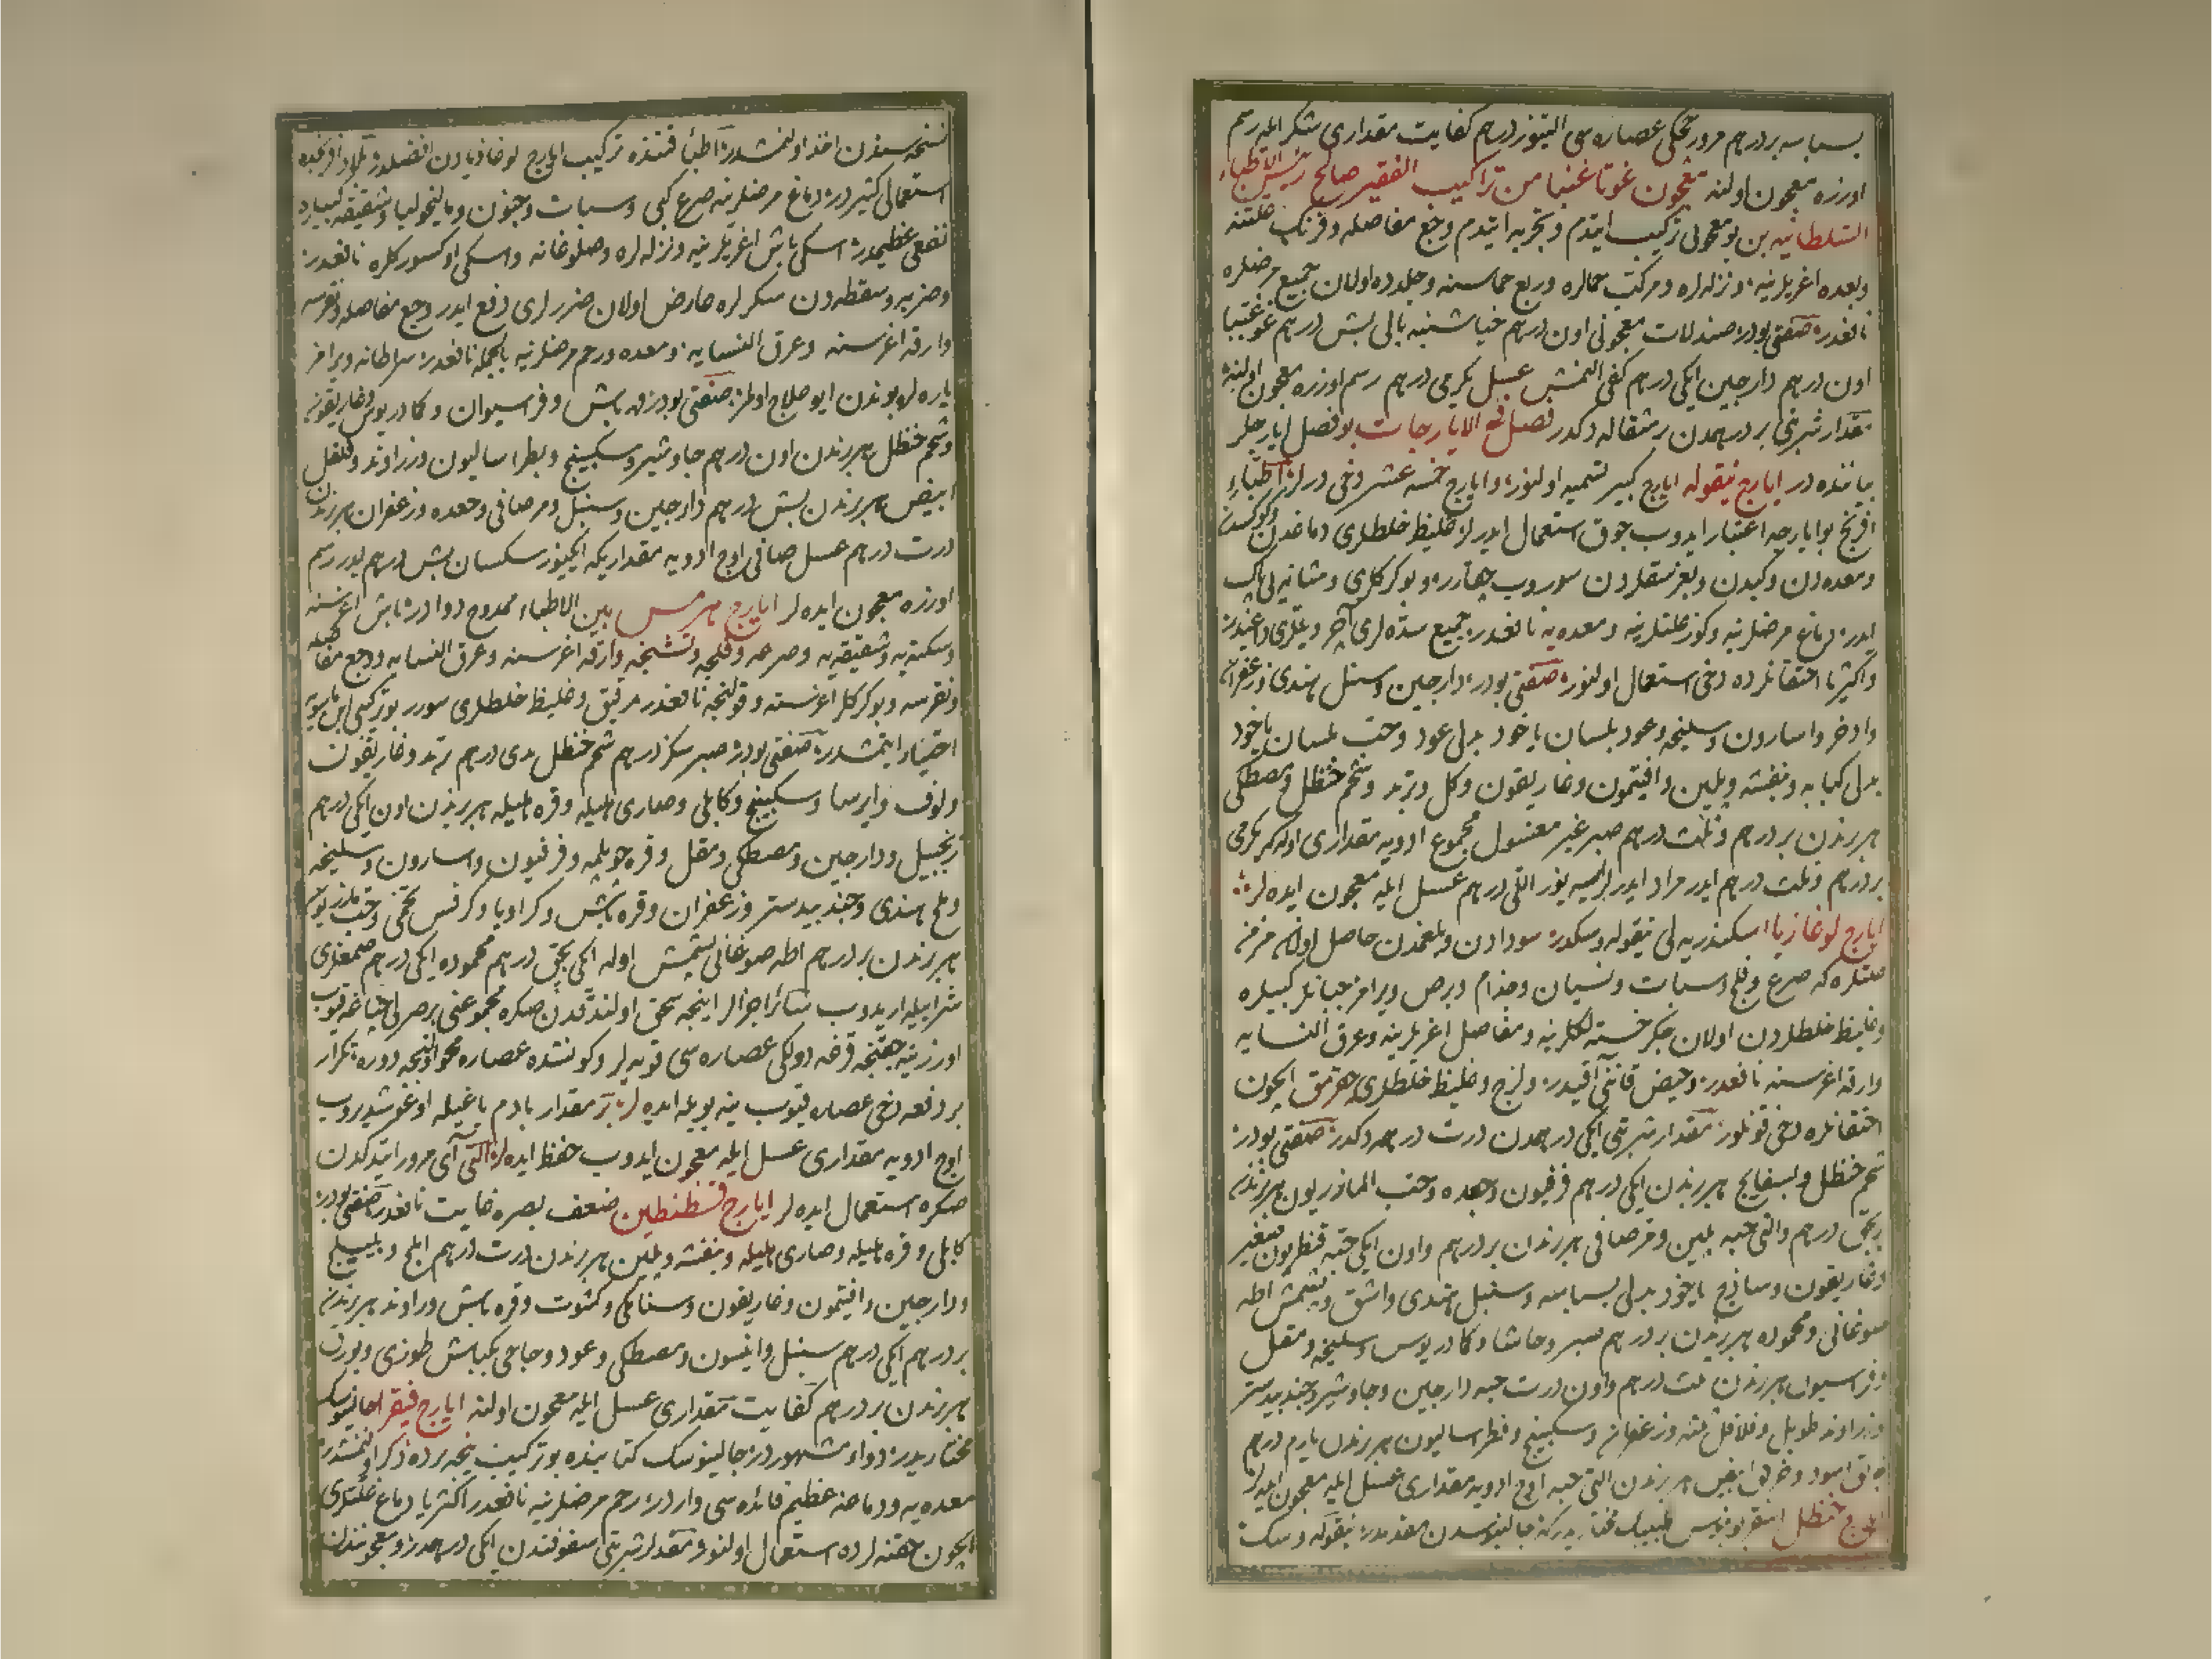 بسباسه بردرهم مرور محكى عصاره سى التيوز درهم كفايت مقدارى شكر ايله رسم
اوزره معجون اولنه معجون غوتا غنبا من تراكيب الفقير صالح رئيس الاطباء
السلطانيه بن بو معجونى تركيب ايتدم و تجربه ايتدم وجع مفاصله و فرنك علتنه
و معده اغريلرينه و نزله لره و مركب حمالره و ربع حماسنه و جلدده اولان جميع مرضلره
نافعدر صنعتى بودر صندلات معجونى اون درهم خياشنبه بالى بش درهم غوتغنبا
اون درهم دارچين ايكى درهم كفى النمش عسل يكرمى درهم رسم اوزره معجون اولنه
مقدار شربتى بر درهمدن بر مثقاله دكدر فصل فى الايارجات بو فصل ايارجلر
بياننده در ايارج نيقوله ايارج كبير تسميه اولنور و ايارج خمسه عشر دخى درلر اطباء
افرنج بو ايارجه اعتبار ايدوب چوق استعمال ايدرلر غليظ خلطلرى دماغدن و كوكسدن
و معده دن و كبدن و بعز سقلردن سوروب چقارر و بوكركلرى و مثانه يى پاك
ايدر دماغ مرضلرينه و كوز علتلرينه و معده يه نافعدر جميع سده لرى آچر و يللرى داغيدر
و اكثريا احتقانلرده دخى استعمال اولنور صنعتى بودر دارچين و سنبل هندى و زعفران
و اذخر و اسارون و سليخه و عود بلسان ياخود بدلى عود و حب بلسان ياخود
بدلى كبابه و بنفشه و افيتمون و غاريقون و كل و تربد و شحم حنظل و مصطكى
هر برندن بر درهم و ثلث درهم صبر غير مغسول مجموع ادويه مقدارى اوله كه يكرمى
بر درهم و ثلث درهم ايدر مراد ايدرلر ايسه يوز اللى درهم عسل ايله معجون ايده لر
ايارج لوغازيا اسكندريه لى نيقوله و سكدر سودادن و بلغمدن حاصل اولان مزمن
علتلره كه صرع و فلج و سبات و نسيان و جذام و برص و يرامز جبانلر كبيلره
و غليظ خلطلردن اولان جكر خسته لكلرينه و مفاصل اغريلرينه و عرق النسايه
و ارقه اغرسنه نافعدر و حيض قاننى آقيدر و لزج و غليظ خلطلرى چقرمق ايچون
احتقانلره دخى قونلور مقدار شربتى ايكى درهمدن درت درهمه دكدر صنعتى بودر
شحم حنظل و بسفايج هر برندن ايكى درهم فرفيون و جعده و حب المازريون هر برندن
بچق درهم و التى حبه و مر صافى هر برندن بر درهم و اون ايكى حبه قنطريون صغير
و غاريقون و ساذج ياخود بدلى بسباسه و سنبل هندى و اشق و پشمش اطه
صوغانى و محموده هر برندن بر درهم صبر و حاشا و كمادريوس و سليخه و مقل
و فراسيون هر برندن ثلث درهم و اون درت حبه دارچين و جاوشير و جندبيدستر
و زراوند طويل و فلافل ثلثه و زعفران و سكبينج و فطراساليون هر برندن يارم درهم
خربق اسود و خربق ابيض هر برندن التى حبه اوچ ادويه مقدارى عسل ايله معجون ايده لر
ايارج حنظل طبيبك مختاريدر كه جالينوسدن مقدمدر نيقوله وسك
نسخه سندن اخذ اولنمشدر اطبا قتنده تركيب ايارج لوغاذيادن افضلدر بلاد افرنجده
استعمالى كثيردر دماغ مرضلرينه صرع كبى و سبات و جنون و ماليخوليا و شقيقه كبيلره
نفعى عظيمدر اسكى باش اغريلرينه و نزله لره و صلوغانه و اسكى اوكسوركلره نافعدر
و ضربه و سقطه دن سكرلره عارض اولان ضررلرى دفع ايدر وجع مفاصله و نقرسه
و ارقه اغرسنه و عرق النسايه و معده و رحم مرضلرينه بالجمله نافعدر سرطانه و يرامز
ياره لره بوندن ايو علاج اولمز صنعتى بودر قره باش و فراسيوان و كمادريوس و غاريقون
و شحم حنظل هر برندن اون درهم جاوشير و سكبينج و بطراساليون و زراوند و فلفل
ابيض هر برندن بش درهم دارچين و سنبل و مر صافى و جعده و زعفران هر برندن
درت درهم عسل صافى اوچ ادويه مقدارى كه ايكيوز سكسان بش درهم ايدر رسم
اوزره معجون ايده لر ايارج هرمس بين الاطباء ممدوح دوادر باش اغرسنه
و سكته يه و شقيقه يه و صرعه و فلجه و تشنجه و ارقه اغرسنه و عرق النسايه و وجع مفاصله
و نقرسه و بوكركلر اغرسنه و قولنجه نافعدر رقيق و غليظ خلطلرى سورر بو تركيبى ابن ماسويه
اختيار ايتمشدر صنعتى بودر صبر سكز درهم شحم حنظل يدى درهم تربد و غاريقون
و لوف و ايرسا و سكبينج و كابلى و صارى هليله و قره هليله هر برندن اون ايكى درهم
زنجبيل و دارچين و مصطكى و مقل و قره چوپلمه و فرفيون و اسارون و سليخه
و ملح هندى و جندبيدستر و زعفران و قره باش و كراويا و كرفس تخمى و حب مازريون
هر برندن بر درهم اطه صوغانى پشمش اوله ايكى بچق درهم محموده ايكى درهم صمغلرى
شرابيله اريدوب سائر اجزالر اينجه سحق اولندقدن صكره مجموعنى بر صرلى چناغه قيوب
اوزرينه چقنجه قرغه دولكى عصاره سى قويه لر و كونشده عصاره محو اولنجه دوره تكرار
بر دفعه دخى عصاره قيوب ينه بويله ايده لر بر مقدار بادم ياغيله اوغوشدروب
اوچ ادويه مقدارى عسل ايله معجون ايدوب حفظ ايده لر التى آى مرور ايتدكدن
صكره استعمال ايده لر ايارج قسطنطين ضعف بصره غايت نافعدر صنعتى بودر
كابلى و قره هليله و صارى هليله و بنفشه هر برندن درت درهم املج و بليلج
و دارچين و افيتمون و غاريقون و سنامكى و كشوت و قره باش و راوند هر برندن
بر درهم ايكى درهم سنبل و انيسون و مصطكى و عود و حاجى بكباش طوزى و بورق
هر برندن بر درهم كفايت مقدارى عسل ايله معجون اولنه ايارج فيقرا جالينوسك
مختاريدر دواء مشهوردر جالينوسك كتابنده بو تركيب نيچه يرده ذكر اولنمشدر
معده يه و دماغه عظيم فائده سى واردر رحم مرضلرينه نافعدر اكثريا دماغ علتلرى
ايچون حقنه لرده استعمال اولنور مقدار شربتى سفوفندن ايكى درهمدر و معجونندن